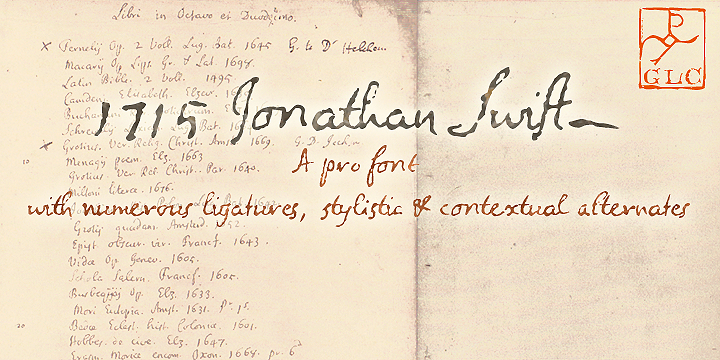 Libri in Octavo et Duodecimo.
× Pernetij Op. 2 Voll. Lug. Bat. 1645 G. to Dr
Macarij Op Lips. Gr. & Lat. 1698.
Latin Bible. 2 Voll. 1495.
Camden Elisabeth. Elzev.
× Grotius. Ver. Relig. Christ. Amst. 1669.
10 Menagij poem. Elz. 1663
Grotius. Ver Rel Christ. Par. 1640.
Miltoni literæ. 1676.
Epist obscur. vir. Francf. 1643.
Vidæ Op. Genev. 1605.
Schola Salern. Francf. 1605.
Busbeqij Op. Elz. 1633.
Mori Eutopia. Amst. 1631. Pr. 1s.
20 Bedæ Eclest. hist. Coloniæ. 1601.
Hobbes de cive. Elz. 1647.
Erasm. Moriæ encom. Oxon. 1668. pr. 6d
1715 Jonathan Swift
A pro font
with numerous ligatures, stylistic & contextual alternates
GLC